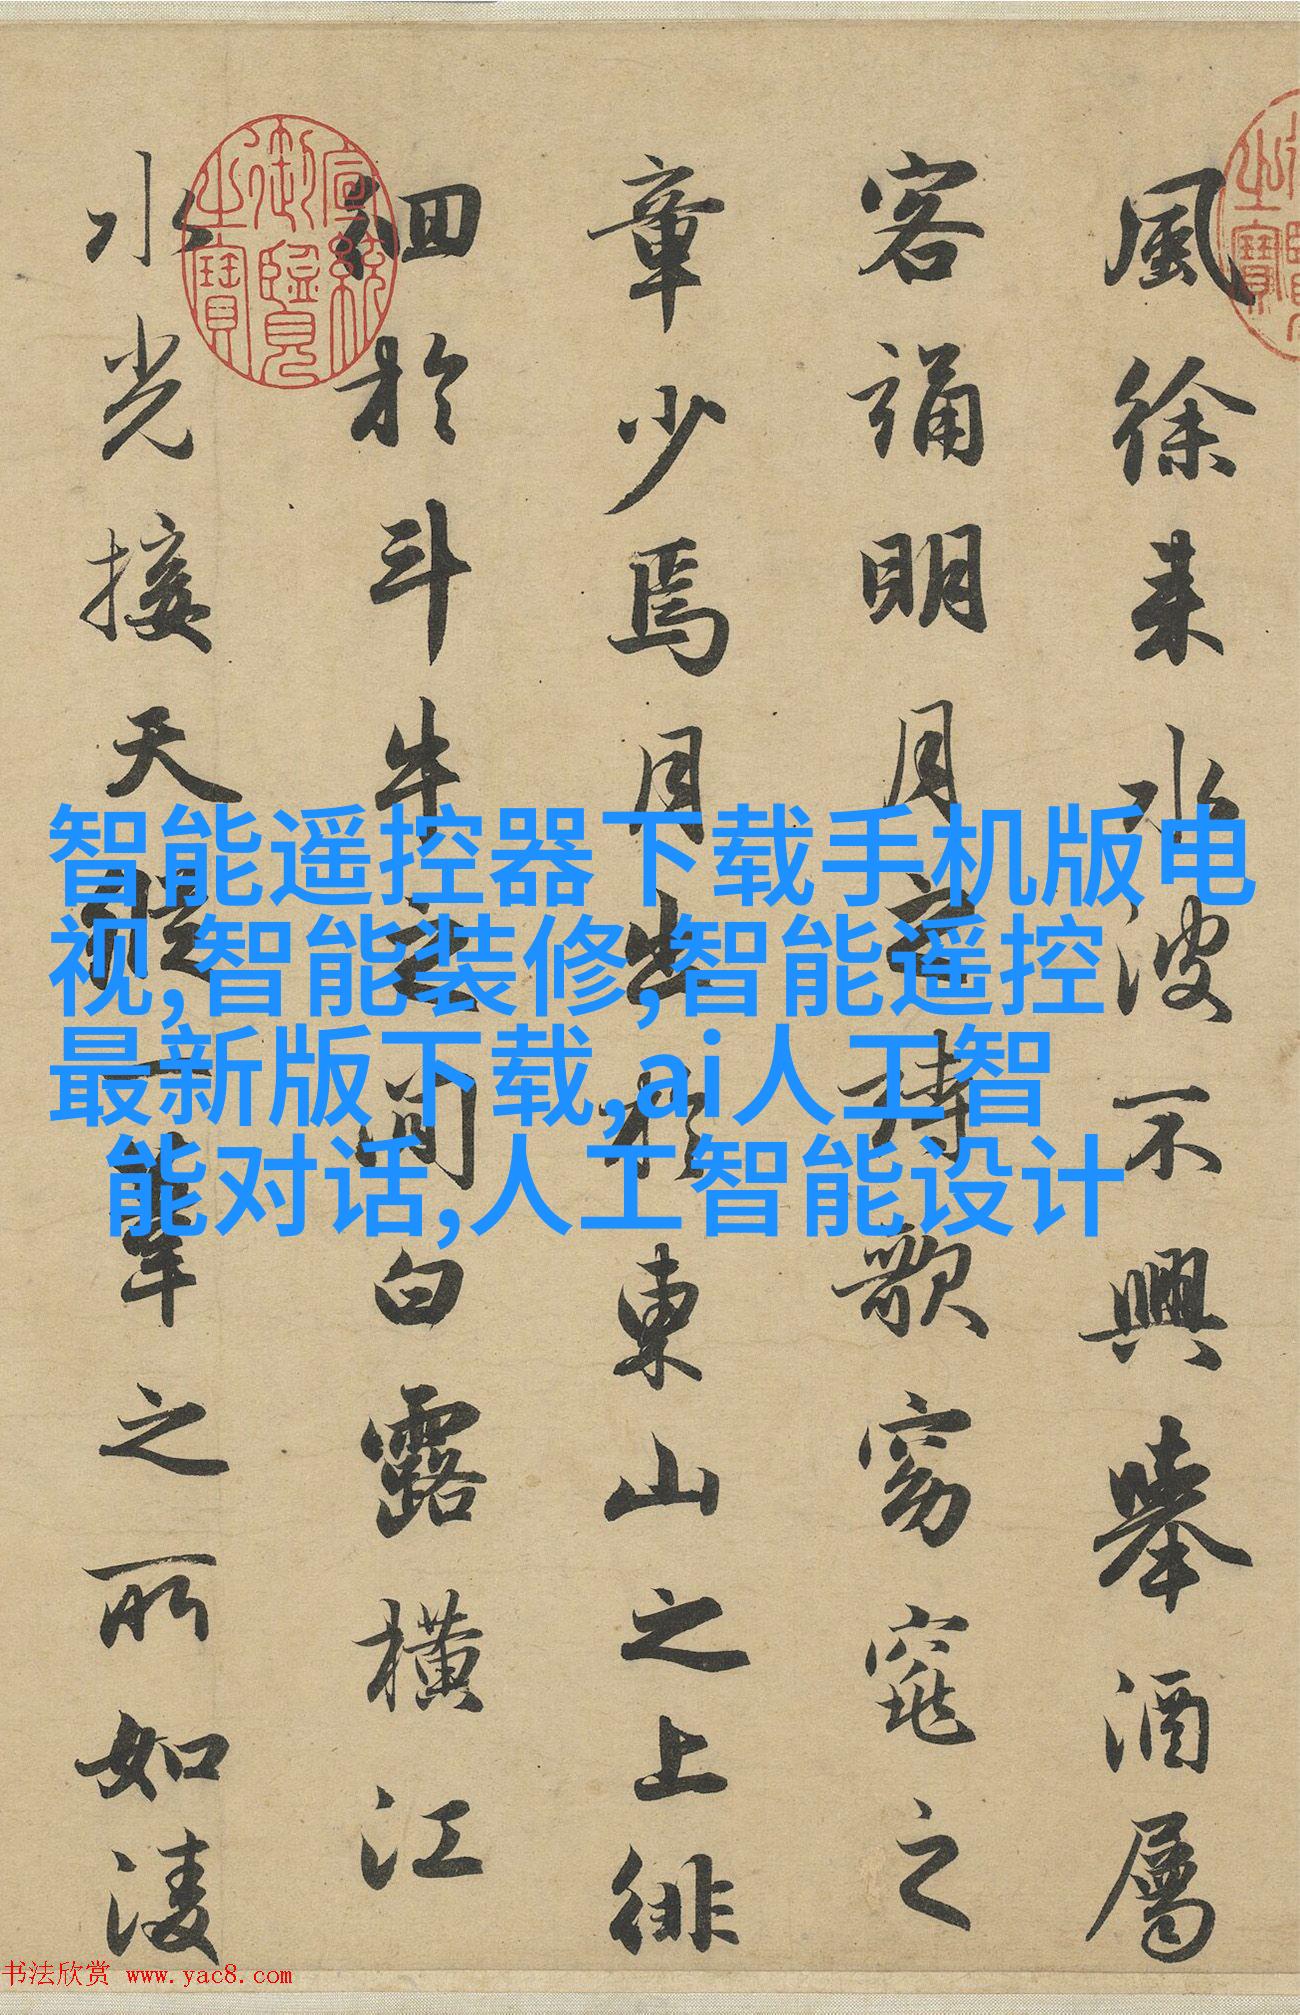 風徐来水波不興舉酒屬
客誦明月之詩歌窈窕之
章少焉月出於東山之上徘
徊於斗牛之間白露橫江
水光接天縱一葦之所如凌
宣統御覽之寶
智能遥控器下载手机版电
视,智能装修,智能遥控
最新版下载,ai人工智
能对话,人工智能设计
书法欣赏 www.yac8.com